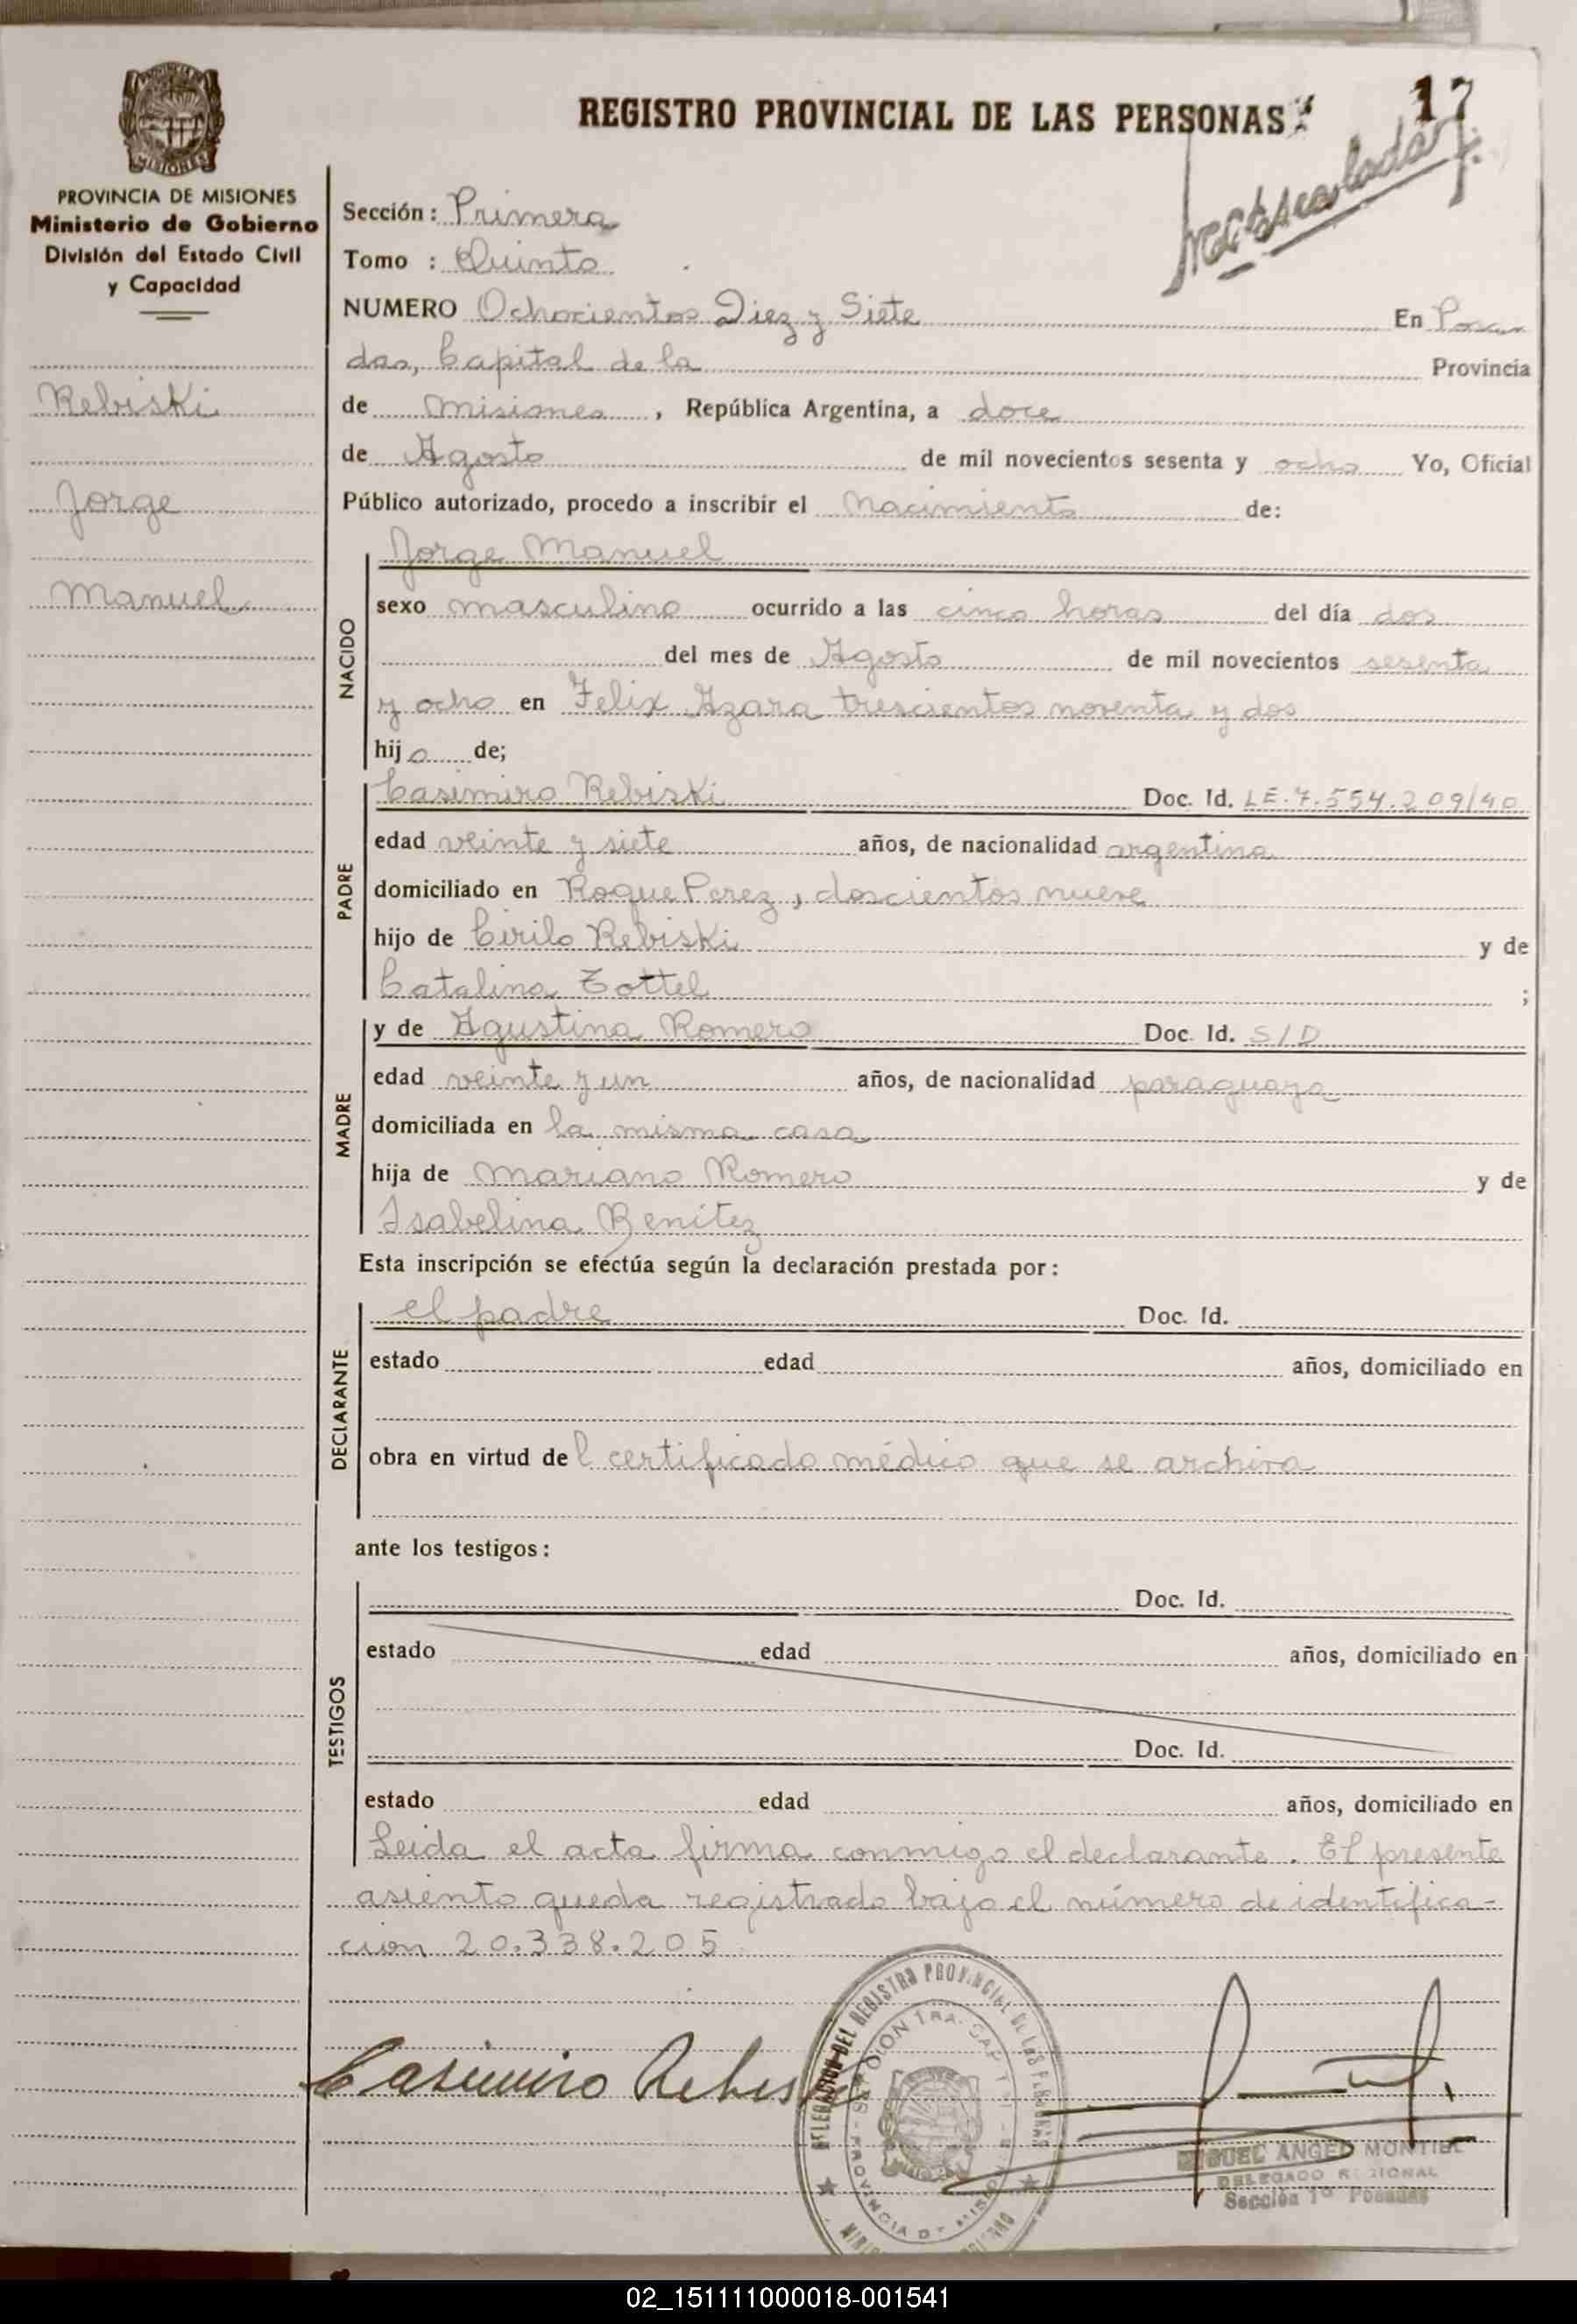 REGISTRO PROVINCIAL DE LAS PERSONAS
17
PROVINCIA DE MISIONES
Ministerio de Gobierno
División del Estado Civil
y Capacidad
Rebiski
Jorge
Manuel
Sección: Primera
Tomo : Quinto
NUMERO Ochocientos Diez y Siete En Posa
das, Capital de la Provincia
de Misiones, República Argentina, a doce
de Agosto de mil novecientos sesenta y ocho Yo, Oficial
Público autorizado, procedo a inscribir el Nacimiento de:
NACIDO
Jorge Manuel
sexo masculino ocurrido a las cinco horas del día dos
del mes de Agosto de mil novecientos sesenta
y ocho en Felix Azara trescientos noventa y dos
hijo de;
PADRE
Casimiro Rebiski Doc. Id. LE.7.554.209/40
edad veinte y siete años, de nacionalidad argentina
domiciliado en Roque Perez, doscientos nueve
hijo de Cirilo Rebiski y de
Catalina Zottel ;
MADRE
y de Agustina Romero Doc. Id. S/D
edad veinte y un años, de nacionalidad paraguaya
domiciliada en la misma casa
hija de Mariano Romero y de
Isabelina Benitez
Esta inscripción se efectúa según la declaración prestada por:
DECLARANTE
el padre Doc. Id.
estado edad años, domiciliado en
obra en virtud del certificado médico que se archiva
ante los testigos:
TESTIGOS
Doc. Id.
estado edad años, domiciliado en
Doc. Id.
estado edad años, domiciliado en
Leida el acta firma conmigo el declarante. El presente
asiento queda registrado bajo el número de identifica-
cion 20.338.205
Casimiro Rebiski
DELEGACION DEL REGISTRO PROVINCIAL DE LAS PERSONAS
PROVINCIA DE MISIONES
MIGUEL ANGEL MONTIEL
DELEGADO REGIONAL
Sección 1ª Posadas
02_151111000018-001541